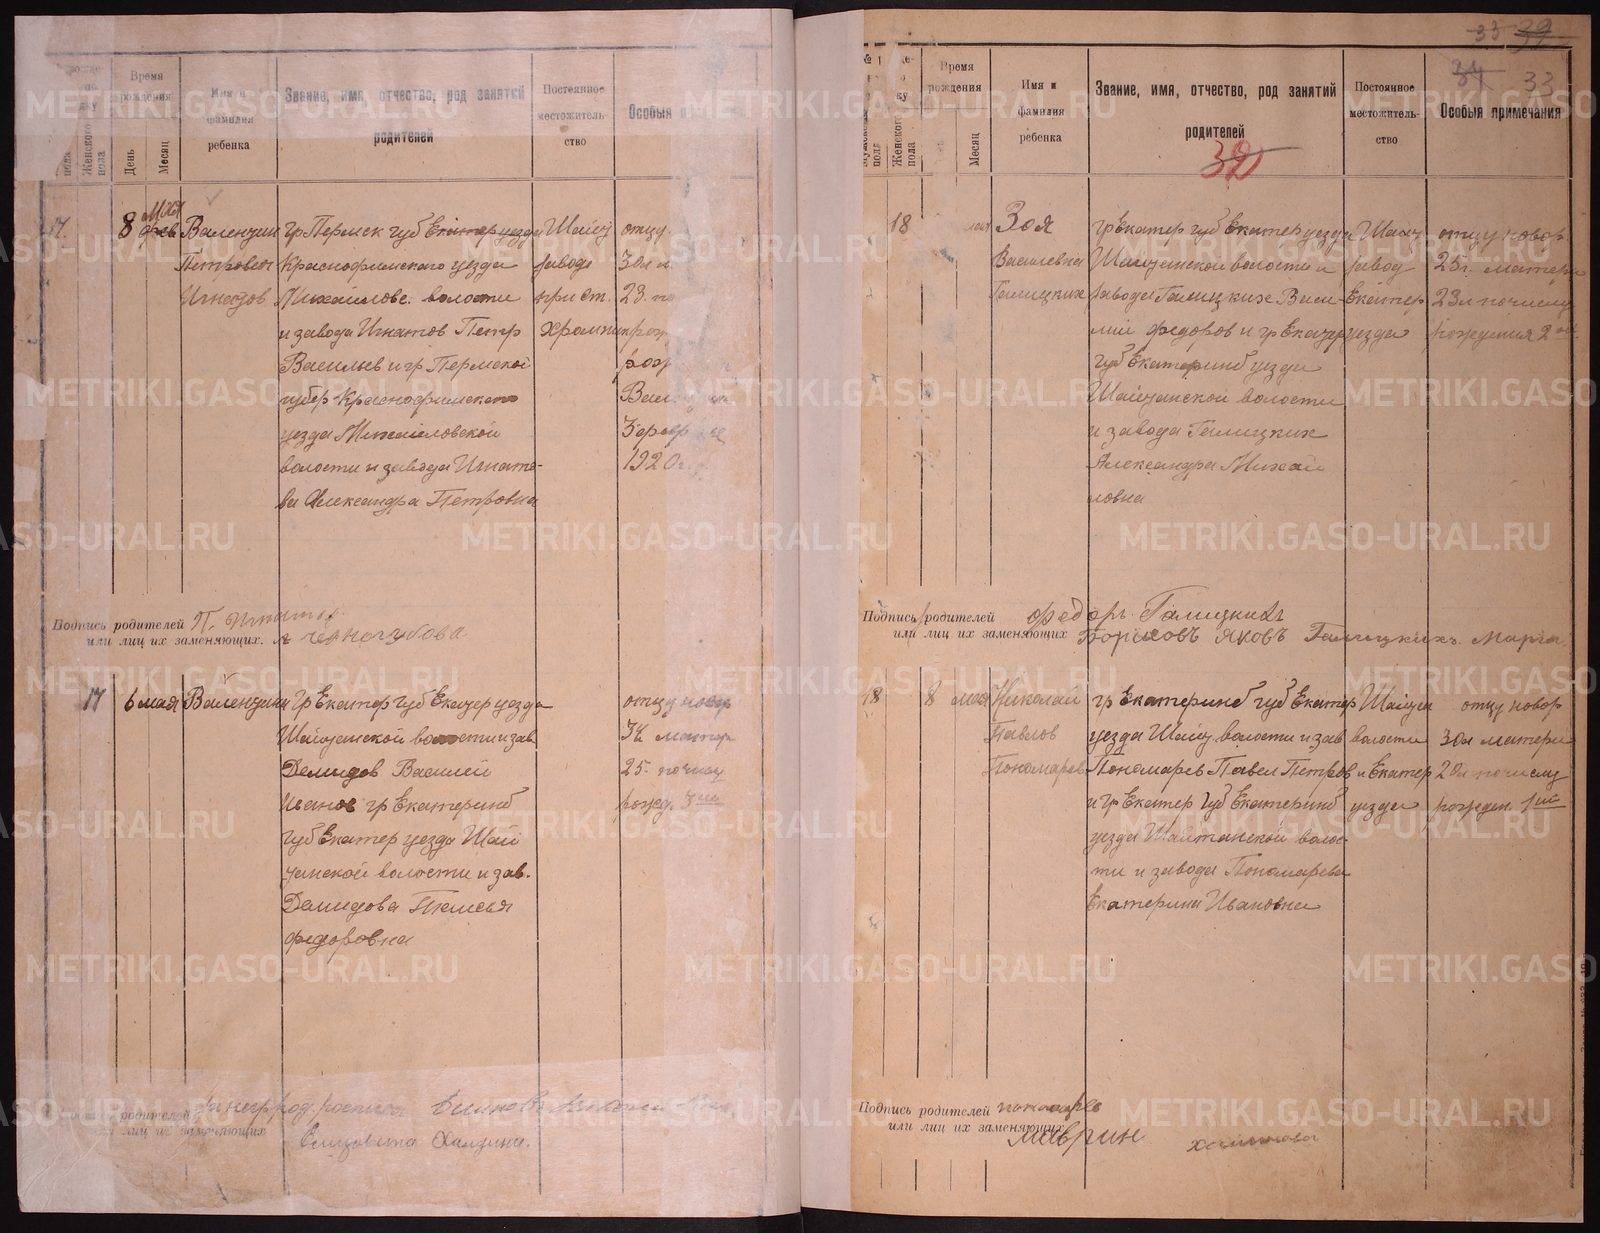 33 39
34 33
Время рождения
Женского пола
День
Месяц
Имя и фамилия ребенка
Звание, имя, отчество, род занятий родителей
Постоянное местожительство
Особыя
17.
8 мая
Валентин
Петрович
Игнатов
гр Пермск губ Екатер уезда
Краснофимскаго уезда
Михайловс. волости
и завода Игнатов Петр
Васильев и гр Пермской
губер Краснофимскаго
уезда Михайловской
волости и завода Игнато-
ва Александра Петровна
Шайт
завод
при ст.
Хромпик
отцу
30 л м.
23. по
рож
1920 г.
Подпись родителей П. Игнатов
или лиц их заменяющих. Черногубова
17
6 мая
Валентина
гр Екатер губ Екатер уезда
Шайтанской волости и зав
Демидов Василей
Иванов гр Екатеринб
губ Екатер уезда Шай
танской волости и зав.
Демидова Таисья
Федоровна
отцу новор
34 матер
25. по числу
рожд. 3ий
родителей
лиц их заменяющих
Елизовета Халдина.
Женского пола
Время рождения
Месяц
Имя и фамилия ребенка
Звание, имя, отчество, род занятий родителей
32
Постоянное местожительство
Особыя примечания
18
мая
Зоя
Васильевна
Галицких
гр Екатер губ Екатер уезда
Шайтанской волости и
завода Галицких Васи-
лий Федоров и гр Екатер уезда
губ Екатеринб уезда
Шайтанской волости
и завода Галицких
Александра Михай
ловна
Шайт
завод
Екатер
уезда
отцу новор
25 г. матери
23 л по числу
рождения 2ой
Подпись родителей Федор Галицких
или лиц их заменяющих Борисовъ Яковъ Галицкихъ Марья
18
8 мая
Николай
Павлов
Пономарев
гр Екатеринб губ Екатер
уезда Шайт волости и зав
Пономарев Павел Петров
и гр Екатер губ Екатеринб
уезда Шайтанской волос-
ти и завода Пономарева
Екатерина Ивановна
Шайтан
волости
и Екатер
уезда
отцу новор
30 л матери
20 л по числу
рожден. 1ий
Подпись родителей Пономарев
или лиц их заменяющих Маврин
METRIKI.GASO-URAL.RU